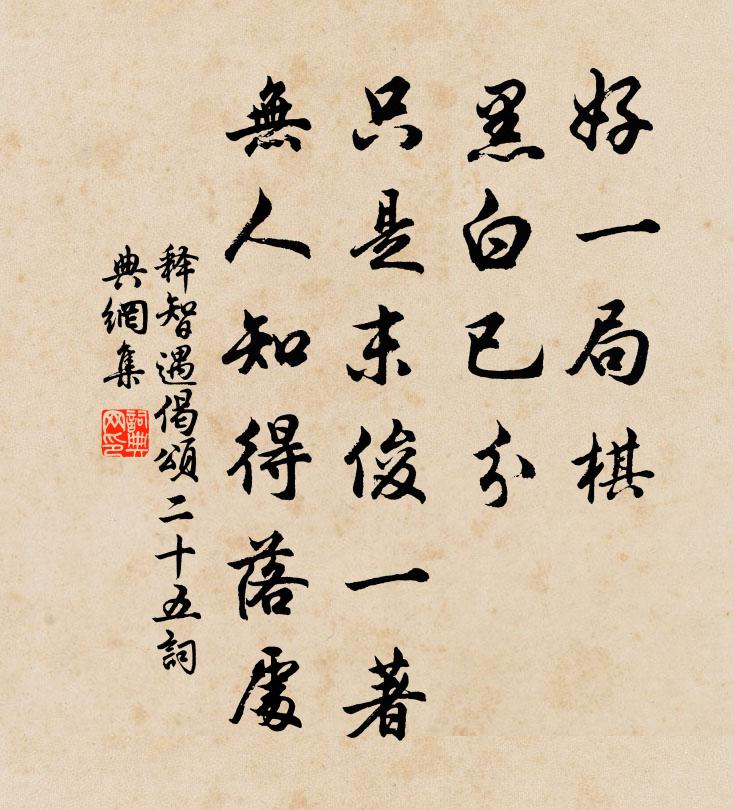 好一局棋
黑白已分
只是末俊一著
無人知得落處
释智遇偈頌二十五詞
典網集
詞典
网印